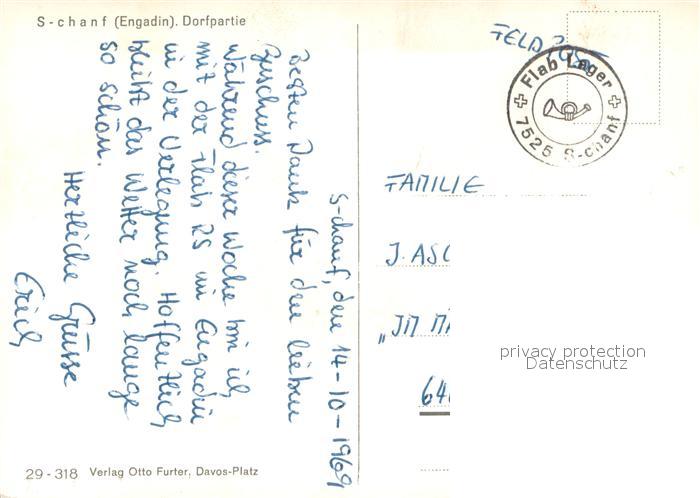 S-chanf (Engadin). Dorfpartie
S-chanf, den 14-10-1969
Besten Dank für den lieben
Zuschuss.
Während dieser Woche bin ich
mit der Flab RS im Engadin
in der Verlegung. Hoffentlich
bleibt das Wetter noch lange
so schön.
Herzliche Grüsse
Erich
29-318 Verlag Otto Furter, Davos-Platz
FELDPOST
Flab Lager
7525 S-chanf
FAMILIE
J. ASC
"IM MA
64
privacy protection
Datenschutz